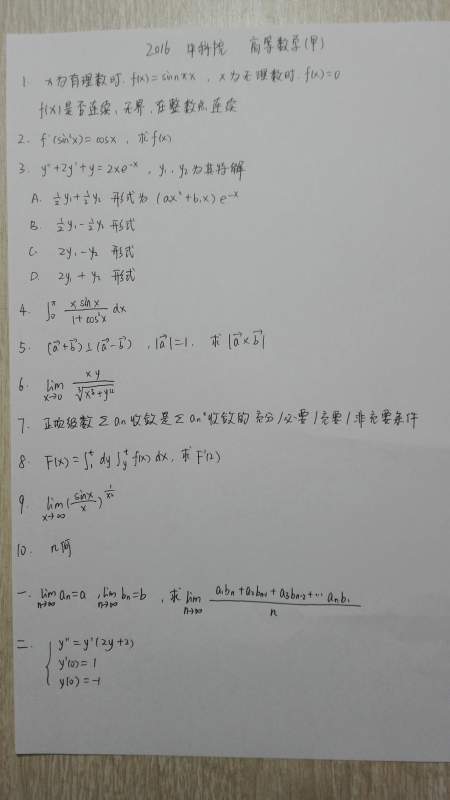 2016 中科院 高等数学(甲)
1. x为有理数时. f(x)=sinπx , x为无理数时. f(x)=0
f(x)是否连续、无界、在整数点连续
2. f'(sin²x)=cosx , 求f(x)
3. y''+2y'+y=2xe^-x , y₁、y₂为其特解
A. ½y₁+½y₂ 形式为 (ax²+b₁x)e^-x
B. ½y₁-½y₂ 形式
C. 2y₁-y₂ 形式
D. 2y₁+y₂ 形式
4. ∫₀^π x sinx / 1+cos²x dx
5. (a⃗+b⃗)⊥(a⃗-b⃗) , |a⃗|=1. 求 |a⃗×b⃗|
6. lim x→0 xy
7. 正项级数 Σan收敛是 Σan²收敛的 充分/必要/充要/非充要条件
8. F(x)=∫₁^t dy ∫_y^t f(x) dx, 求F'(2)
9. lim x→∞ (sinx/x)^(1/x²)
10. n何
一. lim n→∞ an=a , lim n→∞ bn=b , 求 lim n→∞ a₁bn+a₂bn-1+a₃bn-2+…anb₁ / n
二. { y''=y'(2y+3)
y'(0)=1
y(0)=-1